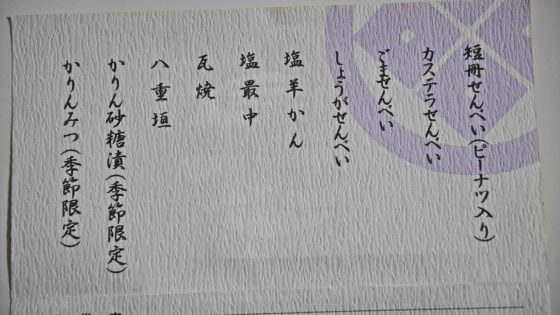 短冊せんべい(ピーナツ入り)
カステラせんべい
ごませんべい
しょうがせんべい
塩羊かん
塩最中
瓦焼
八重垣
かりん砂糖漬(季節限定)
かりんみつ(季節限定)